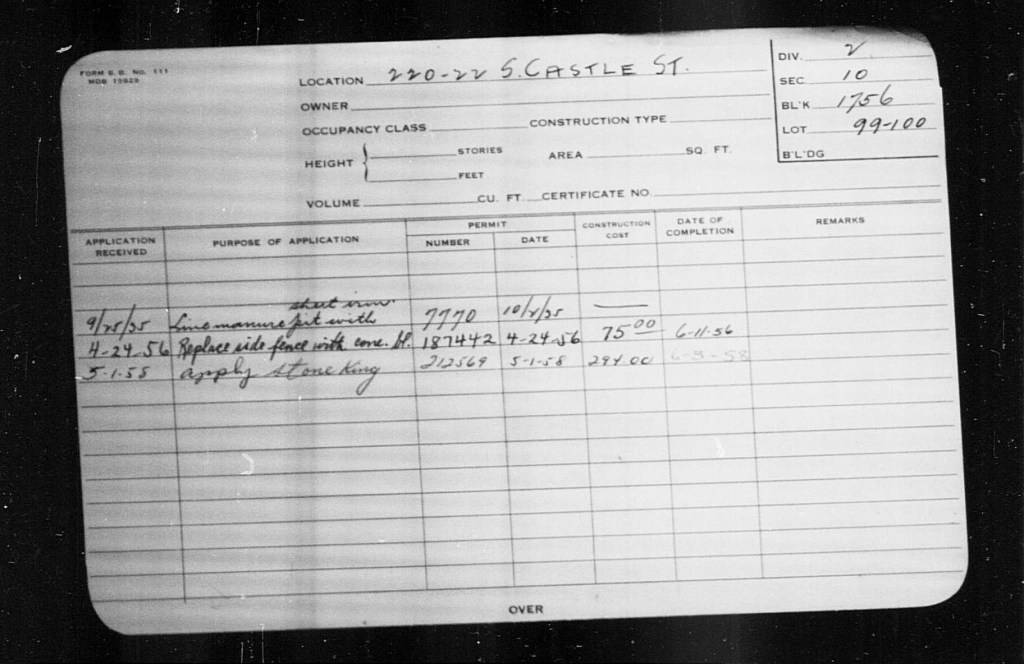 FORM B. B. NO. 111
MDB 19929
LOCATION 220-22 S. CASTLE ST.
OWNER
OCCUPANCY CLASS CONSTRUCTION TYPE
HEIGHT { STORIES AREA SQ. FT.
FEET
VOLUME CU. FT. CERTIFICATE NO.
DIV. 2
SEC. 10
BL'K 1756
LOT 99-100
B'L'DG
APPLICATION RECEIVED PURPOSE OF APPLICATION PERMIT NUMBER DATE CONSTRUCTION COST DATE OF COMPLETION REMARKS
sheet iron
9/25/35 Line manure pit with 7770 10/2/35 —
4-24-56 Replace side fence with conc. bl. 187442 4-24-56 75 00 6-11-56
5-1-58 apply stone King 212569 5-1-58 294.00 6-9-58
OVER